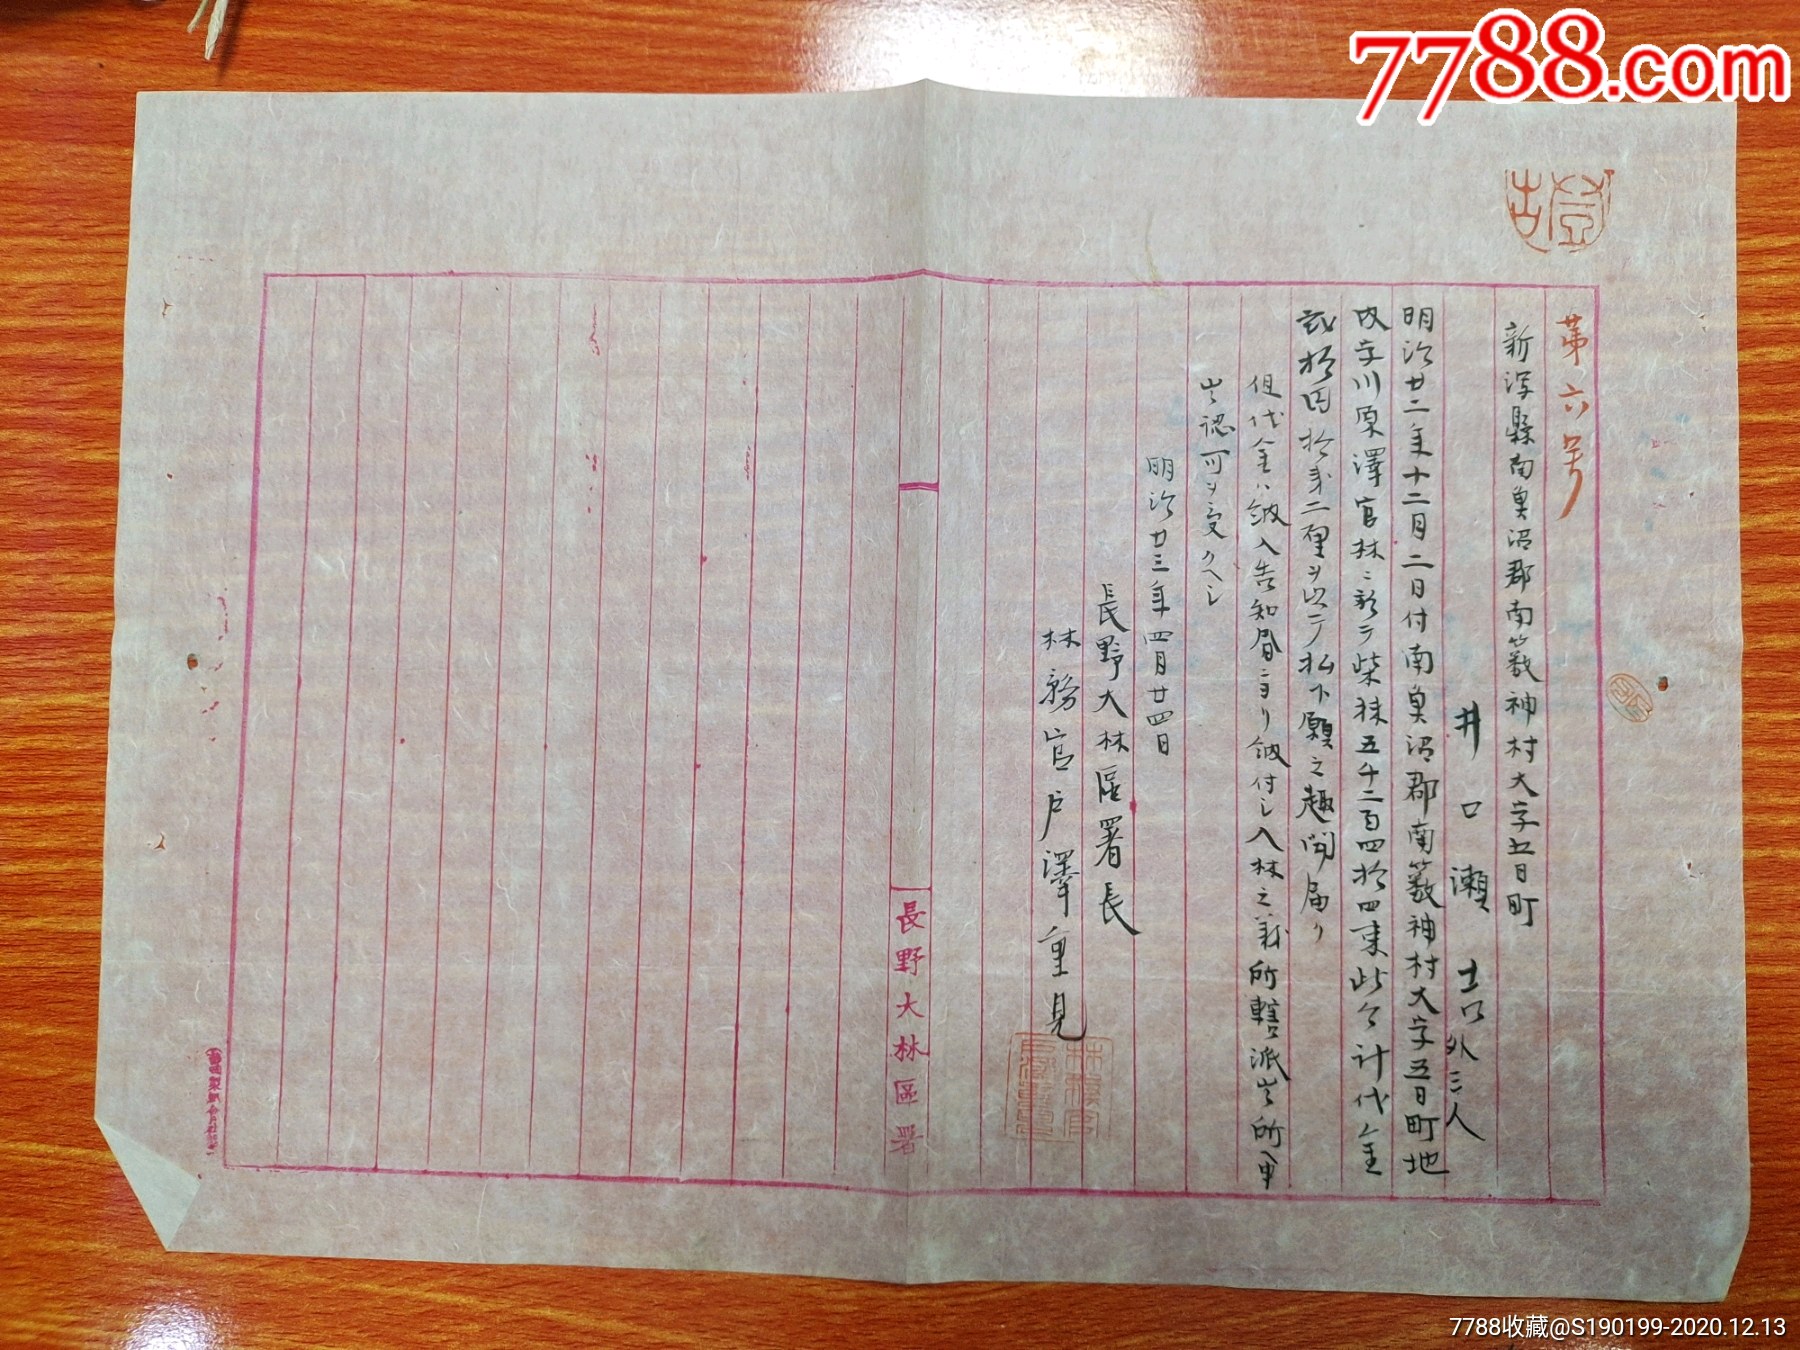 7788.com
第六号
新潟縣南魚沼郡南藪神村大字五日町
井口瀬吉外三人
明治廿二年十二月二日付南魚沼郡南藪神村大字五日町地
内字川原澤官林ニ於テ柴楳五千二百四拾四束此合計代金
弐拾四拾弐二厘ヲ以テ払下願之趣聞届リ
但代金ハ納入告知書ニヨリ納付シ入林之義所轄派出所ヘ申
出認可ヲ受クヘシ
明治廿三年四月廿四日
長野大林區署長
林務官戸澤重見
長野大林區署
7788收藏@S190199-2020.12.13